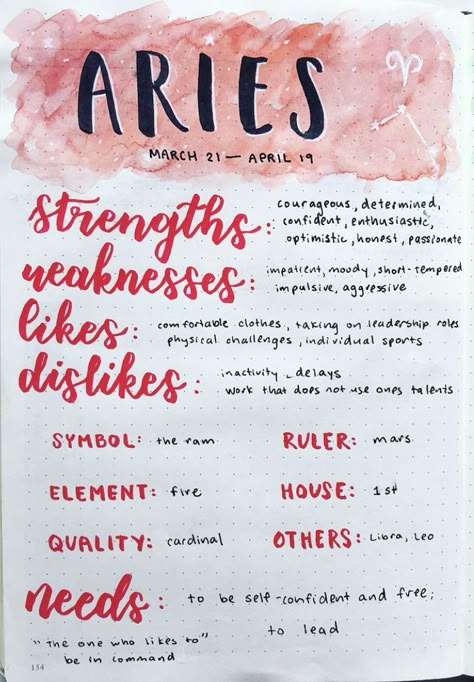 ARIES
MARCH 21 — APRIL 19
strengths: courageous, determined,
confident, enthusiastic,
optimistic, honest, passionate
weaknesses: impatient, moody, short-tempered
impulsive, aggressive
likes: comfortable clothes, taking on leadership roles
physical challenges, individual sports
dislikes: inactivity, delays
work that does not use ones talents
SYMBOL: the ram RULER: mars
ELEMENT: fire HOUSE: 1st
QUALITY: cardinal OTHERS: Libra, Leo
needs: to be self-confident and free;
to lead
"The one who likes to"
be in command
154